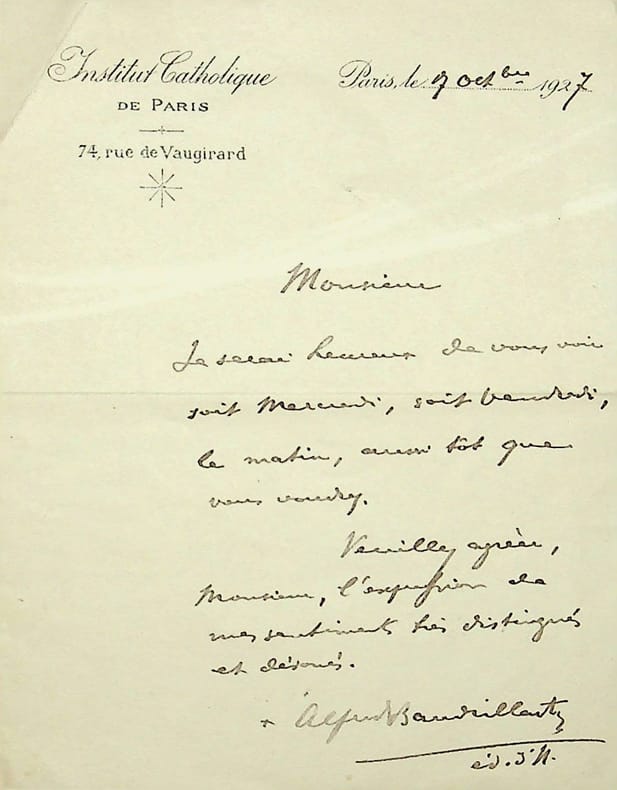 Institut Catholique
DE PARIS
74, rue de Vaugirard
Paris, le 9 octbre 1927
Monsieur
Je serai heureux de vous voir
soit Mercredi, soit Vendredi,
le matin, aussi tôt que
vous voudrez.
Veuillez agréer,
Monsieur, l'expression de
mes sentiments très distingués
et dévoués.
+ Alfred Baudrillart
év. d'H.